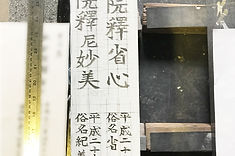 院釋省心
平成二十
俗名省
院釋尼妙美
平成二十
俗名紀美